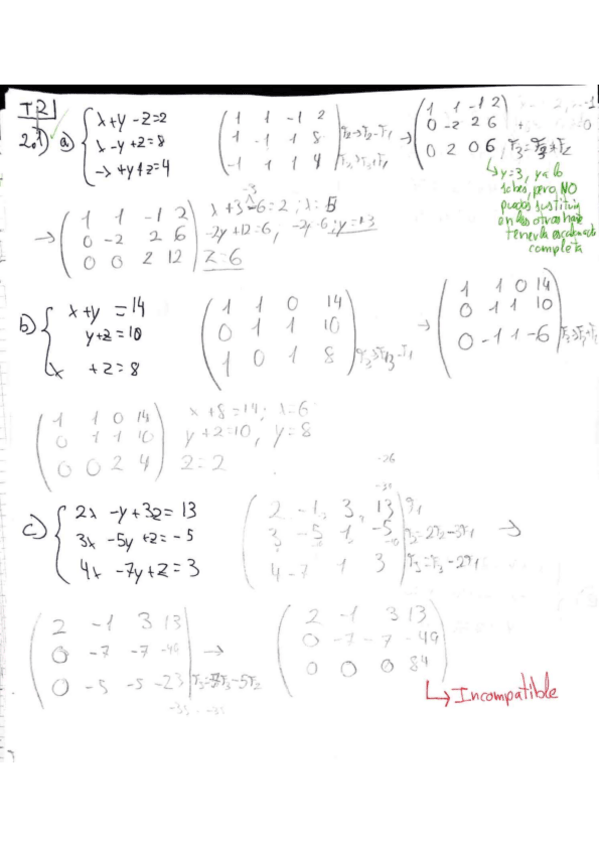 TR1
2.1) a) { x+y-z=2
x-y+z=8
-x+y+z=4
( 1 1 -1 2
1 -1 1 8
-1 1 1 4 ) r2→r2-r1
→ ( 1 1 -1 2
0 -2 2 6
0 2 0 6 )
y=3, ya lo
sabes, pero NO
puedes sustituir
en las otras hasta
tener la escalonada
completa
→ ( 1 1 -1 2
0 -2 2 6
0 0 2 12 )
x+3-6=2; x=5
-2y+12=6, -2y=-6; y=3
z=6
b) { x+y=14
y+z=10
x +z=8
( 1 1 0 14
0 1 1 10
1 0 1 8 )
→ ( 1 1 0 14
0 1 1 10
0 -1 1 -6 )
( 1 1 0 14
0 1 1 10
0 0 2 4 )
x+8=14; x=6
y+2=10, y=8
z=2
c) { 2x-y+3z=13
3x-5y+z=-5
4x-7y+z=3
( 2 -1 3 13
3 -5 1 -5
4 -7 1 3 ) r3=r3-2r1
→
( 2 -1 3 13
0 -7 -7 -49
0 -5 -5 -23 ) r3=7r3-5r2
→ ( 2 -1 3 13
0 -7 -7 -49
0 0 0 84 )
Incompatible